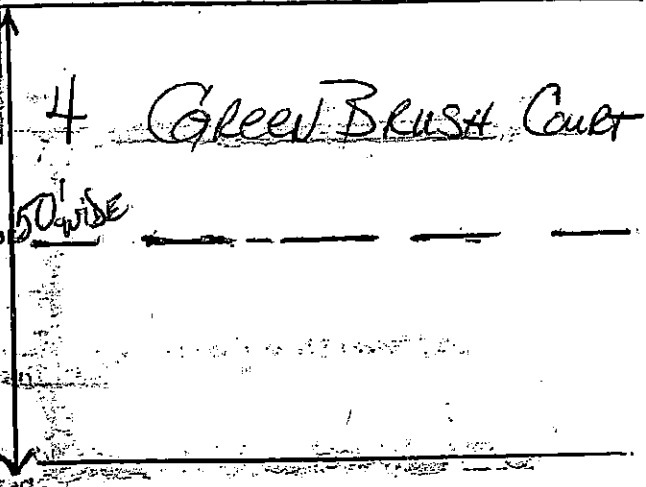 4 GREEN BRUSH COURT
50' WIDE